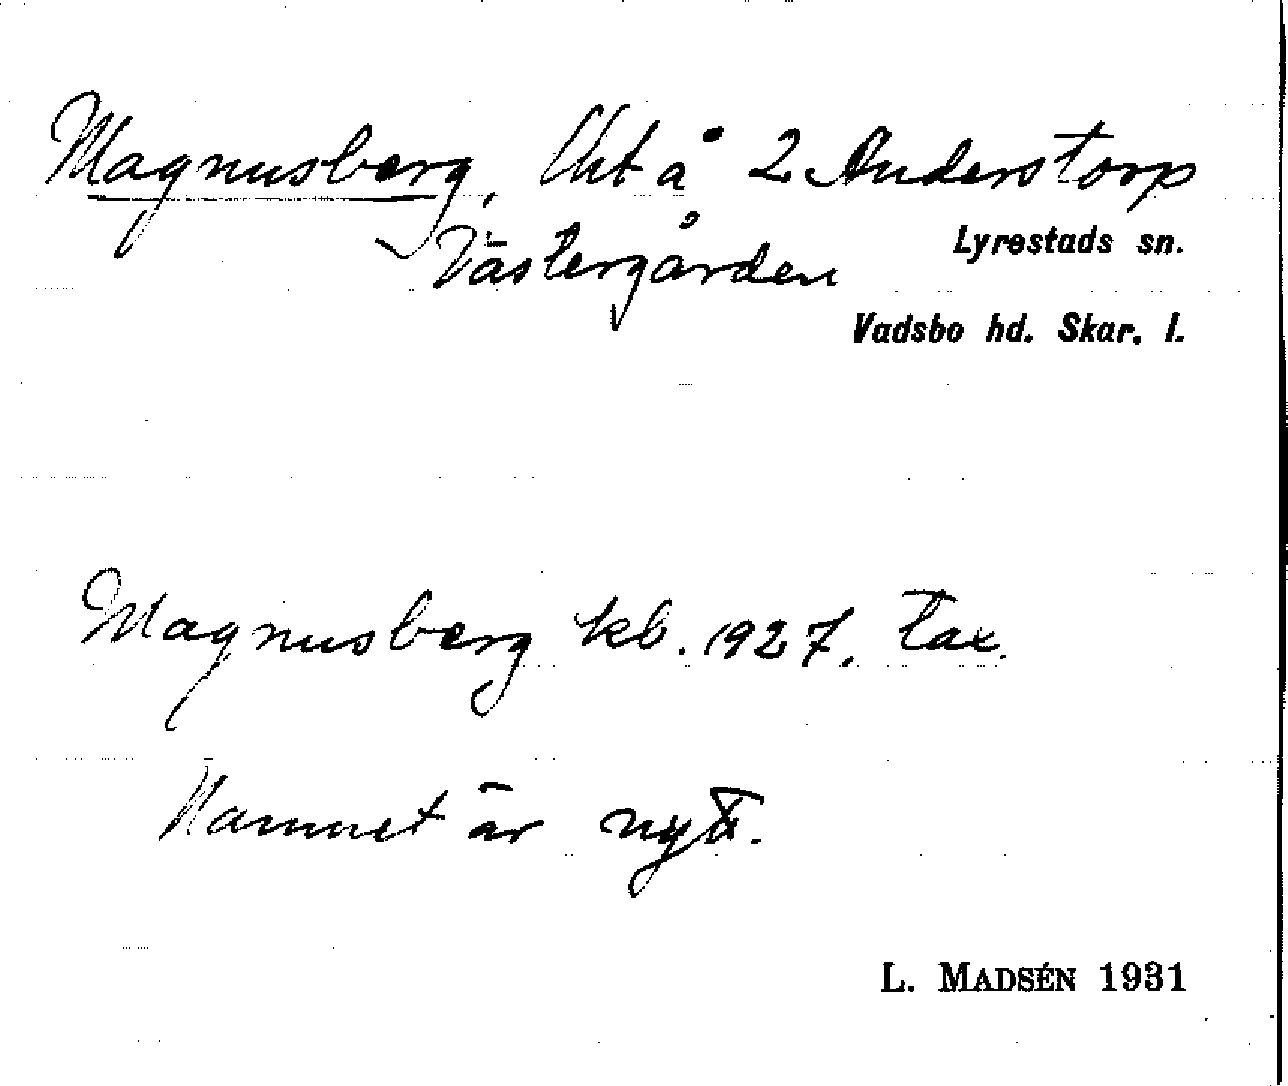 Magnusberg, lht å 2 Anderstorp
Västergården
Lyrestads sn.
Vadsbo hd. Skar. l.
Magnusberg kb. 1927. Tax.
Namnet är nytt.
L. MADSÉN 1931